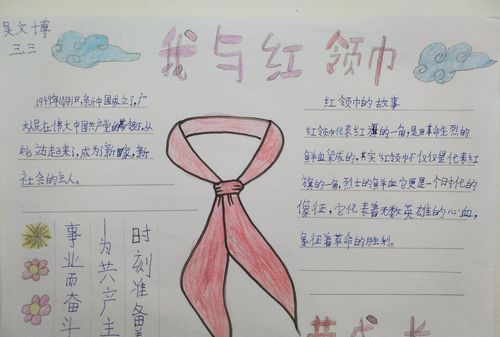 吴文博
三、三
我与红领巾
1949年10月1日,新中国成立了,广
大人民在伟大中国共产党的带领下,从
此站起来了,成为了新国家,新
社会的主人。
红领巾的故事
红领巾代表红旗的一角,是用革命先烈的
鲜血染成的。其实红领巾不仅仅是代表红
旗的一角,烈士的鲜血它更是一个时代的
像征,它代表着无数英雄的心血,
象征着革命的胜利。
时刻准备着
一为共产主
事业而奋斗
成长